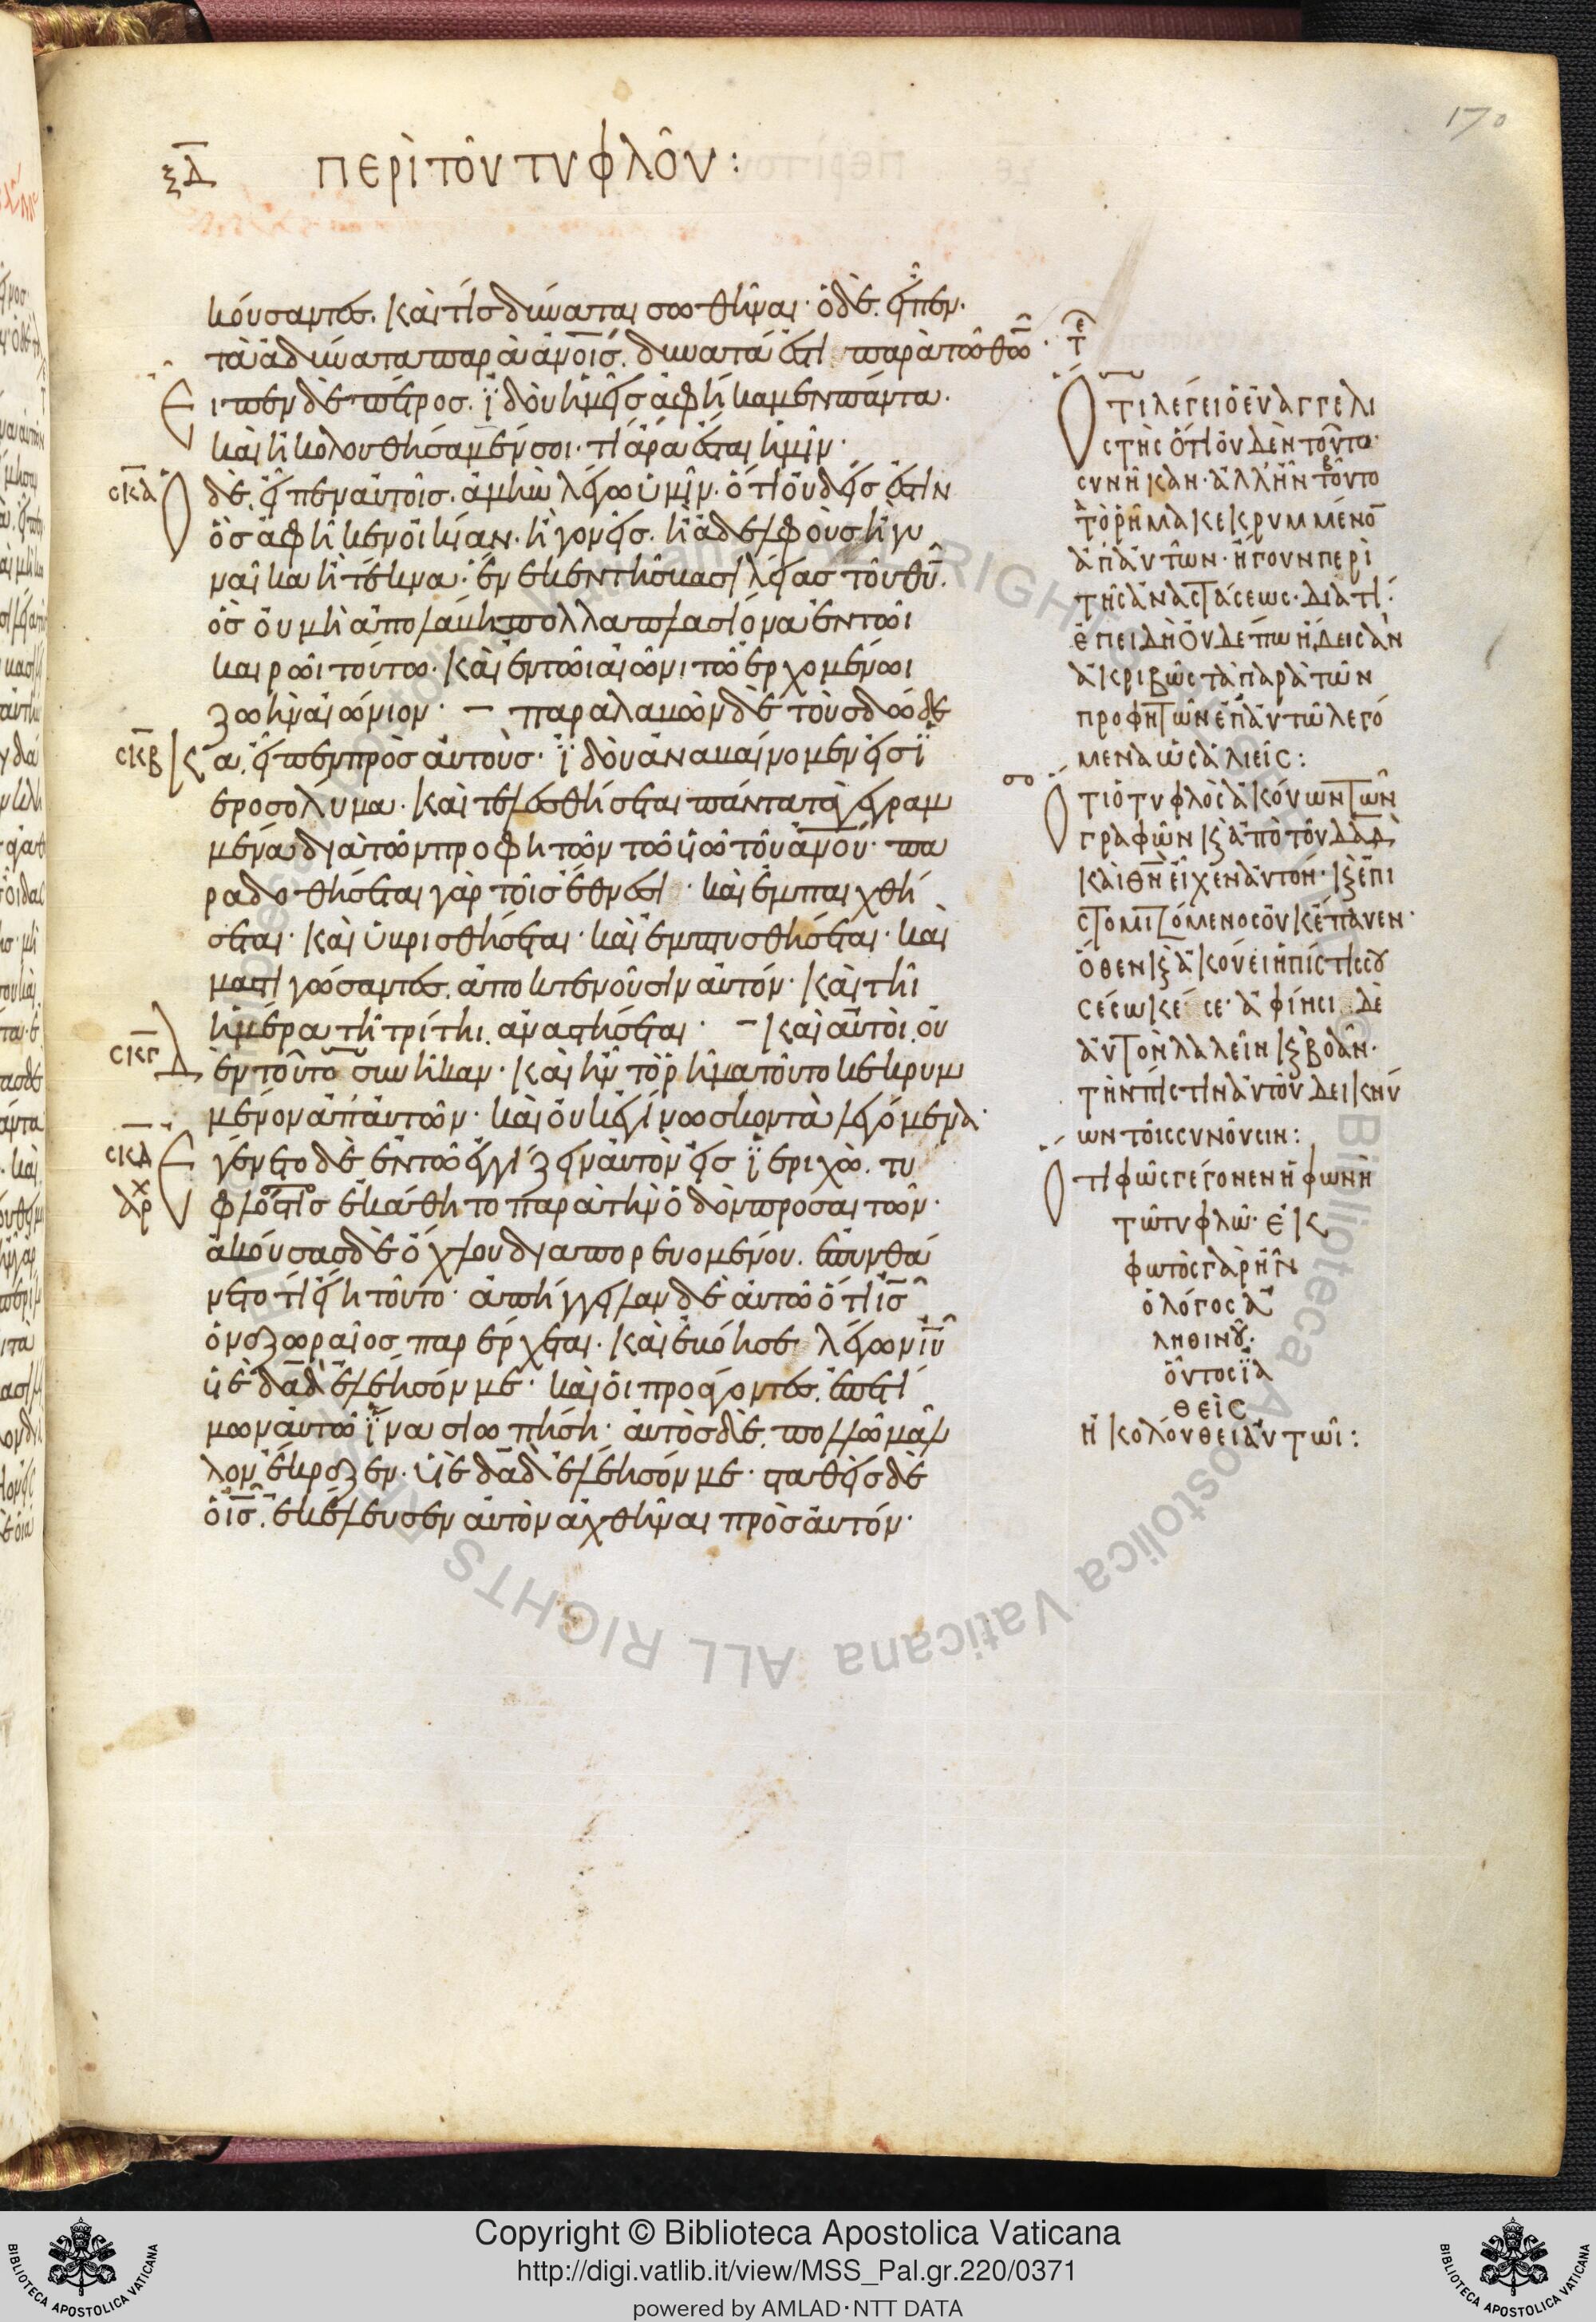 170
ξδ περὶ τοῦ τυφλοῦ:
κόυσαντες. καὶ τίς δύναται σωθῆναι· ὁ δὲ. εἶπεν·
τὰ ἀδύνατα παρὰ ἀνοις. δυνατά ἐστι παρὰ τῶ θῶ·
ειπεν δὲ πέτρος. ϊδοὺ ἡμεῖς ἀφήκαμεν πάντα.
καὶ ἠκολουθήσαμέν σοι· τί ἄρα ἔσται ἡμῖν·
σκα Ο δὲ. εἶπεν αὐτοῖς. ἀμὴν λέγω ὑμῖν. ὅτι οὐδείς ἐστιν
ὃς ἀφῆκεν οἰκίαν. ἢ γονεῖς. ἢ ἀδελφοὺς ἢ γυ
ναῖκα ἢ τέκνα· ἕνεκεν τῆς βασιλείας τοῦ θυ.
ὃς οὐ μὴ ἀπολάβη πολλαπλασίονα ἐν τῶι
καιρῶι τούτω. καὶ ἐν τῶι αἰῶνι τῶ ἐρχομένωι
ζωὴν αἰώνιον· – παραλαβὼν δὲ τοὺς δώδε
σκβ κα. εἶπεν πρὸς αὐτοὺς· ϊδοὺ ἀναβαίνομεν εἰς ϊ
εροσολυμα. καὶ τελεσθήσεται πάντα τὰ γεγραμ
μένα διὰ τῶν προφητῶν τῶ ὑιῶ τοῦ ἀνου· πα
ραδοθήσεται γὰρ τοῖς ἔθνεσι· καὶ ἐμπαιχθή
σεται· καὶ ὑβρισθήσεται· καὶ ἐμπτυσθήσεται· καὶ
μαστιγώσαντες. ἀποκτενοῦσιν αὐτόν· καὶ τῆ
ἡμέρα τῆ τρίτηι. ἀναστήσεται· – καὶ αὐτοὶ. οὐ
σκγ Δ ἐν τοῦτο συνῆκαν· καὶ ἦν τὸ ῥῆμα τοῦτο κεκρυμ
μένον ἀπ' αὐτῶν· καὶ οὐκ ἐγίνωσκον τὰ λεγόμενα·
σκδ Ε γένετο δὲ ἐν τῶ ἐγγίζειν αὐτὸν εἰς ϊεριχὼ. τυ
ἀρχ φλός τις ἐκάθητο παρὰ τὴν ὁδὸν προσαιτῶν·
ἀκούσας δὲ ὄχλου διαπορευομένου. ἐπυνθά
νετο τί εἴη τοῦτο· ἀπήγγειλαν δὲ αὐτῶ ὅτι ις
ὁ ναζωραῖος παρέρχεται. καὶ ἐβόησε λέγων ιυ
ὑιὲ δαδ ἐλέησόν με· καὶ οἱ προάγοντες. ἐπετί
μων αὐτῶ ϊνα σιωπήση· αὐτὸς δὲ. πολλῶ μᾶλ
λον ἔκραζεν. ὑιὲ δαδ ἐλέησόν με· σταθεὶς δὲ
ὁ ις. ἐκέλευσεν αὐτὸν ἀχθῆναι πρὸς αὐτόν·
Οτι λέγει ὁ εὐαγγελι
στὴς ὅτι οὐδὲν τούτων
συνῆκαν· ἀλλ' ἦν τοῦτο
τὸ ῥῆμα κεκρυμμένον
ἀπ' αὐτῶν· ἤγουν περὶ
τῆς ἀναστάσεως· διατί·
ἐπειδὴ οὐδέπω ἤδεισαν
ἀκριβῶς τὰ παρὰ τῶν
προφητῶν ἐπ' αὐτῶ λεγό
μενα ὡς ἁλιεῖς:
Οτι ὁ τυφλὸς ἀκούων τῶν
γραφῶν κ ἀπὸ τοῦ δαδ
καὶ θν εἶχεν αὐτόν· κ ἐπι
στομιζόμενος οὐκ ἐπαυεν·
ὅθεν κ ἀκούει ἡ πίστις σου
σέσωκέ σε· ἀφίησι δὲ
αὐτὸν λαλεῖν κ βοᾶν·
τὴν πίστιν αὐτοῦ δεικνύ
ων τοῖς συνοῦσιν:
Οτι φῶς γέγονεν ἡ φωνὴ
τῶ τυφλῶ· ἐκ
φωτὸς γὰρ ἦν
ὁ λόγος ἀ
ληθινοῦ·
ὅντος ϊα
θεὶς
ἠκολούθει αὐτῶι:
Copyright © Biblioteca Apostolica Vaticana
http://digi.vatlib.it/view/MSS_Pal.gr.220/0371
powered by AMLAD·NTT DATA
BIBLIOTECA APOSTOLICA VATICANA
BIBLIOTECA APOSTOLICA VATICANA